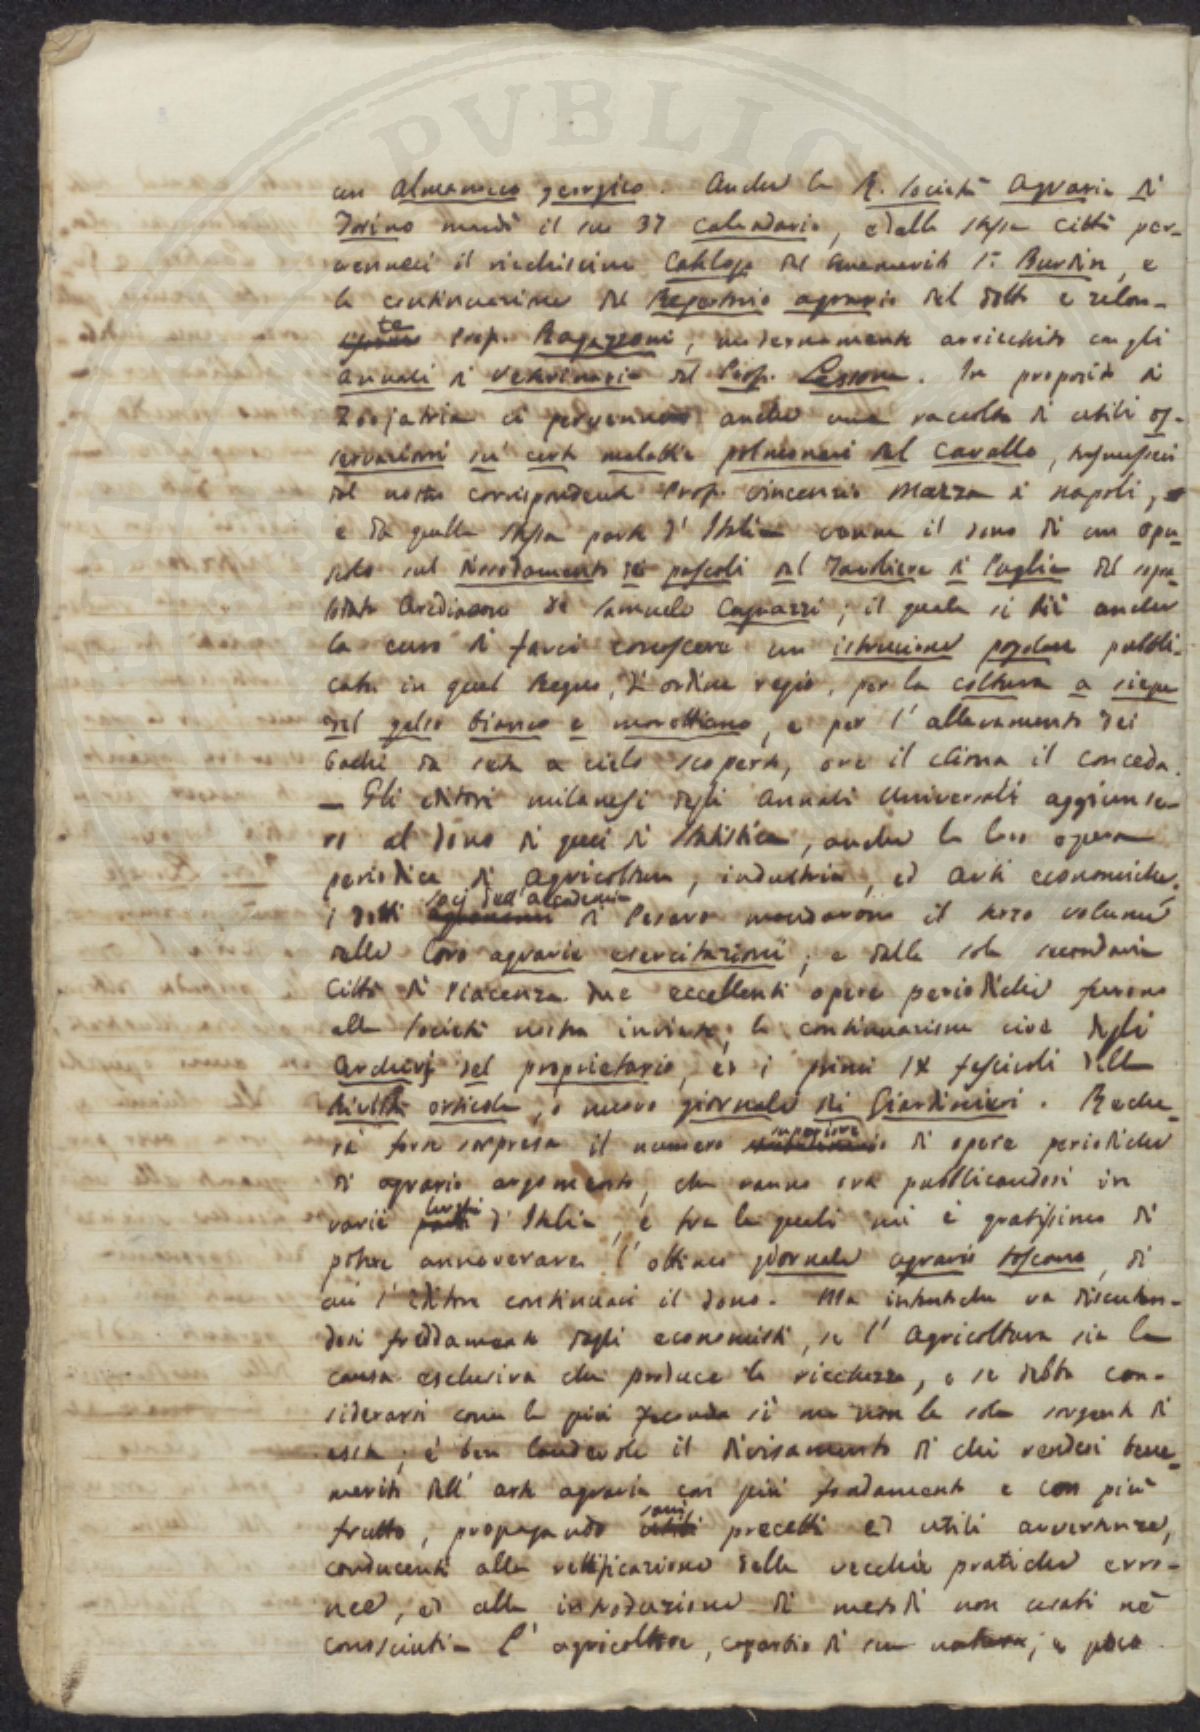 PVBLIC
un Almanacco georgico. Anche la R. Società Agraria di
Torino mandò il suo 37 Calendario, e dalla stessa città per-
venneci il ricchissimo Catalogo del benemerito Sr. Burdin, e
la continuazione del Repertorio agrario del dotto e zelan-
te Prof. Ragazzoni, modernamente arricchito cogli
Annali di Veterinaria del Prof. Lessona. In proposito di
Zoojatria ci pervennero anche una raccolta di utili os-
servazioni su certe malattie polmonari del Cavallo, trasmessici
dal nostro corrispondente Prof. Vincenzo Mazza di Napoli,
e da quella stessa parte d'Italia venne il dono di un opu-
scolo sul dissodamento dei pascoli del Tavoliere di Puglia del
Arcidiacono de Samuele Cagnazzi; il quale si diè anche
la cura di farci conoscere un istruzione popolare pubbli-
cata in quel Regno, d'ordine regio, per la coltura a siepe
del gelso bianco e morettiano, e per l'allevamento dei
bachi da seta a cielo scoperto, ove il clima il conceda.
— Gli editori milanesi degli Annali Universali aggiunse-
ro al dono di quei di Statistica, anche la loro opera
periodica di Agricoltura, industria, ed arti economiche.
socj dell'accademia
I dotti di Pesaro mandarono il terzo volume
delle loro agrarie esercitazioni; e dalla sola secondaria
Città di Piacenza due eccellenti opere periodiche furono
alla Società nostra inviate; la continuazione cioè degli
Archivj del proprietario, ed i primi IX fascicoli della
Rivista orticola, o nuovo giornale dei Giardinieri. Reche-
superiore
rà forse sorpresa il numero di opere periodiche
di agrario argomento, che vanno ora pubblicandosi in
luoghi
varie d'Italia, e tra le quali mi è gratissimo di
potere annoverare l'ottimo giornale agrario toscano, di
cui l'Editore continuaci il dono. Ma intantochè va discuten-
dosi freddamente dagli economisti, se l'Agricoltura sia la
causa esclusiva che produce la ricchezza, o se debba con-
siderarsi come la più feconda sì ma non la sola sorgente di
essa; è ben lodevole il divisamento di chi rendesi bene-
merito dell'arte agraria con più fondamento e con più
sani
frutto, propagando precetti ed utili avvertenze,
conducenti alla rettificazione delle vecchie pratiche erro-
nee, ed alla introduzione di metodi non usati nè
conosciuti. L'agricoltore, di sua natura, e poco